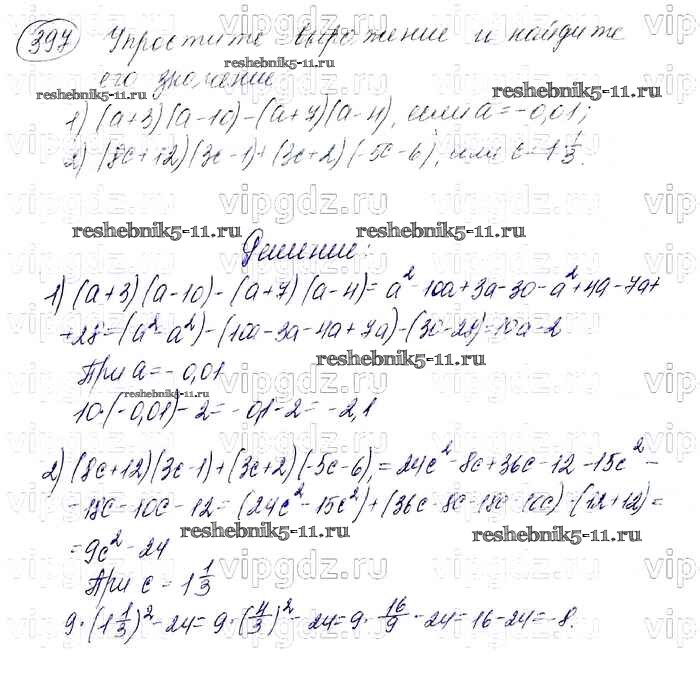 397 Упростите выражение и найдите
его значение
reshebnik5-11.ru
1) (a+3)(a-10)-(a+7)(a-4), если a=-0,01;
2) (8c+12)(3c-1)+(3c+2)(-5c-6), если c=1 1/3.
vipgdz.ru vipgdz.ru vipgdz.ru
reshebnik5-11.ru reshebnik5-11.ru
Решение:
1) (a+3)(a-10)-(a+7)(a-4)=a²-10a+3a-30-a²+4a-7a+
+28=(a²-a²)-(10a-3a-4a+7a)-(30-28)=10a-2
reshebnik5-11.ru
При a=-0,01
reshebnik5-11.ru
10·(-0,01)-2=-0,1-2=-2,1
2) (8c+12)(3c-1)+(3c+2)(-5c-6)=24c²-8c+36c-12-15c²-
-18c-10c-12=(24c²-15c²)+(36c-8c-18c-10c)-(12+12)=
reshebnik5-11.ru reshebnik5-11.ru
=9c²-24
При c=1 1/3
9·(1 1/3)²-24=9·(4/3)²-24=9·16/9-24=16-24=-8.